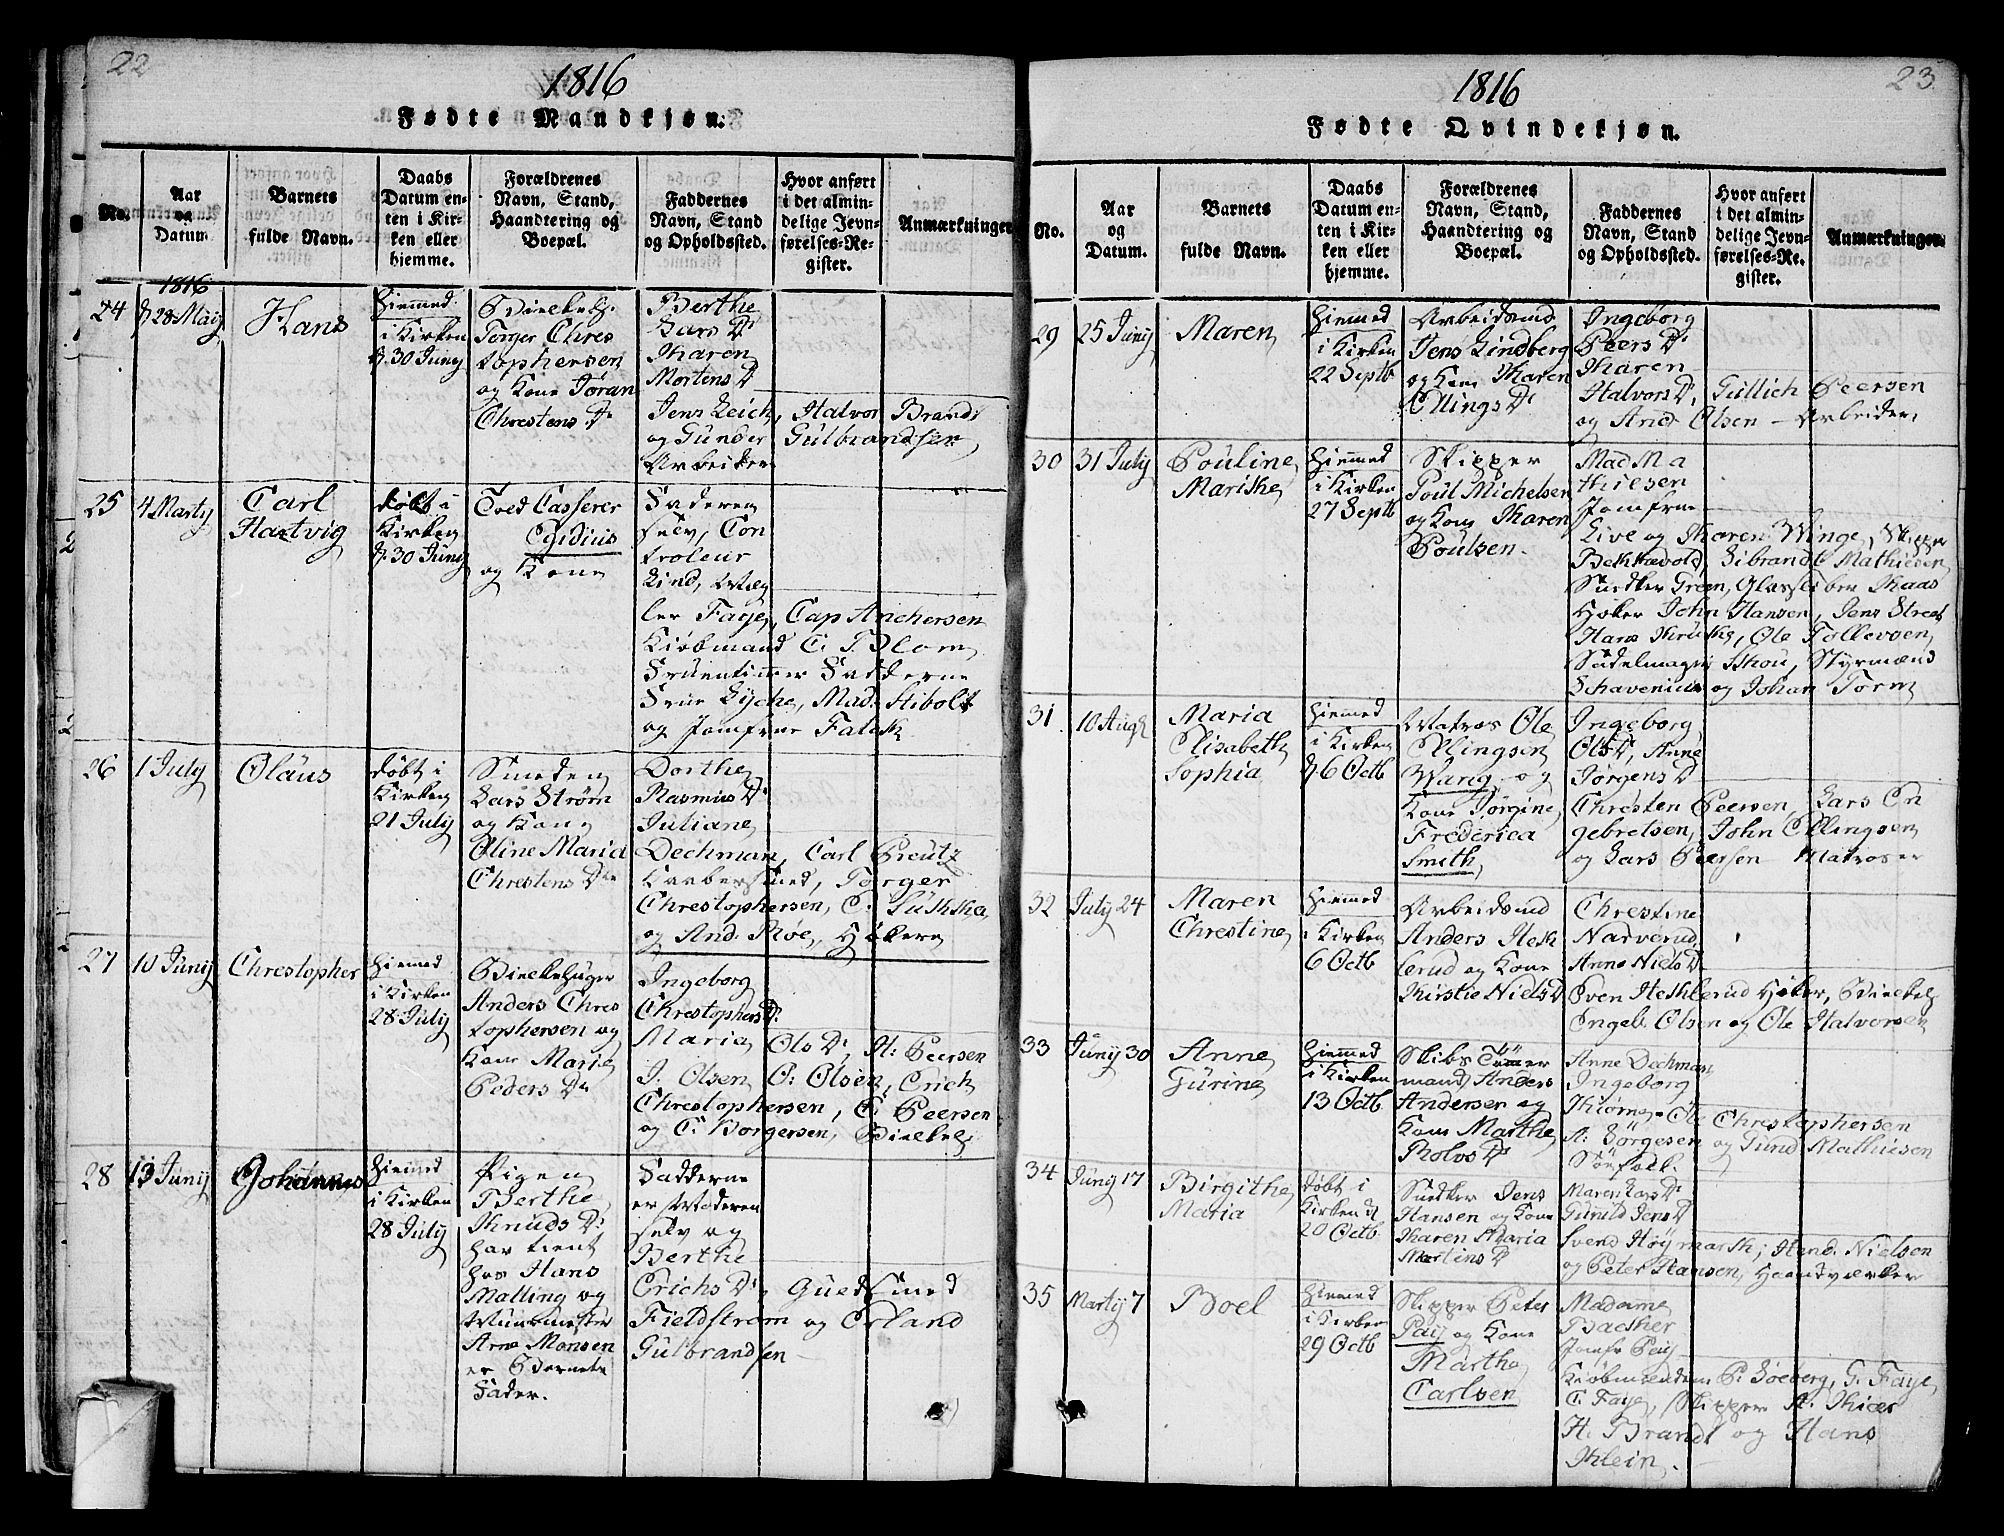 22
1816
Fødte Mandkjøn.
No.
Aar
og
Datum.
Barnets
fulde Navn.
Daabs
Datum en-
ten i Kir-
ken eller
hjemme.
Forældrenes
Navn, Stand,
Haandtering og
Boepæl.
Faddernes
Navn, Stand
og Opholdssted.
Hvor anført
i det almin-
delige Jevn-
førelses-Re-
gister.
Anmærkninger
1816
24
28 Maij
Hans
Hiemmed
i Kirken
30 Juny
Torger Chres
tophersen
og Kone Jøran
Chrestens Dr
Berthe
Lars Dr
Karen
Mortens Dr
Jens Leich, Halvor Brandt
og Gunder Gulbrandsen
Arbeider
25
4 Marty
Carl
Hartvig
døbt i
Kirken
30 Juny
Tved Casserer
Egidius
og Kone
Faderen
selv, Con
troleur
Lind, Mæg
ler Faye, Cap Anchersen
Kiøbmand C. T. Blom
Fruentimmer Fadderne
Frue Lyche, Mad. Stibolt
og Jomfrue Falck
26
1 July
Olaus
døbt i
Kirken
21 July
Smeden
Lars Strøm
og Kone
Oline Maria
Chrestens Dr
Dorthe
Rasmus Dr
Juliane
Dechman, Carl Preutz
Torger
Chrestophersen, C. Lukka
og And. Røe, Høkere
27
10 Juny
Chrestopher
Hiemmed
i Kirken
28 July
Bielkehuger
Anders Chres
tophersen og
Kone Maria
Peders Dr
Ingeborg
Chrestophers Dr
Maria Ols Dr, A: Peersen
J. Olsen, O: Olsen, Erich
Chrestophersen, C. Peersen
og C. Borgersen, Bielkeh:
28
13 Juny
Johannes
Hiemmed
i Kirken
28 July
Pigen
Berthe
Knuds Dr
har tient
hos Hans
Malling og
Muurmester
Arne Monsen
er Barnets
Fader.
Fadderne
er Moderen
selv og
Berthe
Erichs Dr, Guldsmed
Fieldstrøm og Erland
Gulbrandsen
23
1816
Fødte Qvindekjøn.
No.
Aar
og
Datum.
Barnets
fulde Navn.
Daabs
Datum en-
ten i Kir-
ken eller
hjemme.
Forældrenes
Navn, Stand,
Haandtering og
Boepæl.
Faddernes
Navn, Stand
og Opholdssted.
Hvor anført
i det almin-
delige Jevn-
førelses-Re-
gister.
Anmærkninger.
29
25 Juny
Maren
Hiemmed
i Kirken
22 Septb
Arbeidsmd
Jens Lindberg
og Kone Karen
Ellings Dr
Ingeborg
Peers Dr
Karen
Halvors Dr, Gullich Peersen
og And. Olsen – Arbeider
30
31 July
Pouline
Mariske
Hiemmed
i Kirken
27 Septb
Skipper
Poul Michelsen
og Kone Karen
Poulsen.
Mad Ma
thiesen
Jomfrue
Live og Karen Winge, Skipper
Sibrandt Mathiesen
Snedker Green, Glarmester Kaas
Høker John Hansen, Jens Street
Hans Kruse, Ole Tollevsen
Sadelmager Skou, Styrmænd
Schavenius og Johan Torm
31
10 Aug
Maria
Elisabeth
Sophia
Hiemmed
i Kirken
6 Octb
Matros Ole
Ellingsen
Wang og
Kone Jørgine
Frederica
Smith,
Ingeborg
Ols Dr, Anne
Jørgens Dr
Chresten Peersen, Lars En
gebretsen, John Ellingsen
og Lars Peersen Matroser
32
July 24
Maren
Christine
Hiemmed
i Kirken
6 Octb
Arbeidsmd
Anders Hesk
lerud og Kone
Kirstie Niels Dr
Chrestine
Narverud
Anne Niels Dr
Even Hesklerud Høker,
Ingeb: Olsen og Ole Halvorsen
33
Juny 30
Anne
Gurine
Hiemmed
i Kirken
13 Octb
Skibs Tømer
mand Anders
Andersen og
Kone Marthe
Rolvs Dr
Anne Dechman
Ingeborg
Chrestophersen
A: Jørgesen og Gund Mathiesen
Søefolk.
34
Juny 17
Birgithe
Maria
døbt i
Kirken d
20 Octb
Snedker Jens
Hansen og Kone
Karen Maria
Martins Dr
Maren Lars Dr
Gunild Jens Dr
Svend Høymark, Hand. Nielsen
og Peter Hansen, Haandværker
35
Marty 7
Boel
Hiemmed
i Kirken
29 Octb
Skipper Peter
Pay og Kone
Marthe
Carlsen
Madame
Backer
Jomfr Pay
Kiøbmændene P. Søeberg, G. Faye
C. Faye, Skipper A. Kiær
H. Brandt og Hans
Klein.